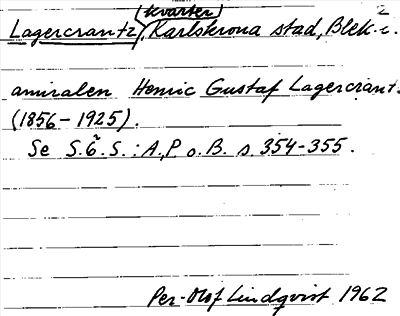 Lagercrantz (kvarter), Karlskrona stad, Blek-e.
amiralen Henric Gustaf Lagercrant.
(1856-1925).
Se S.Ö.S.: A.P. o. B. s. 354-355.
Per-Olof Lindqvist 1962